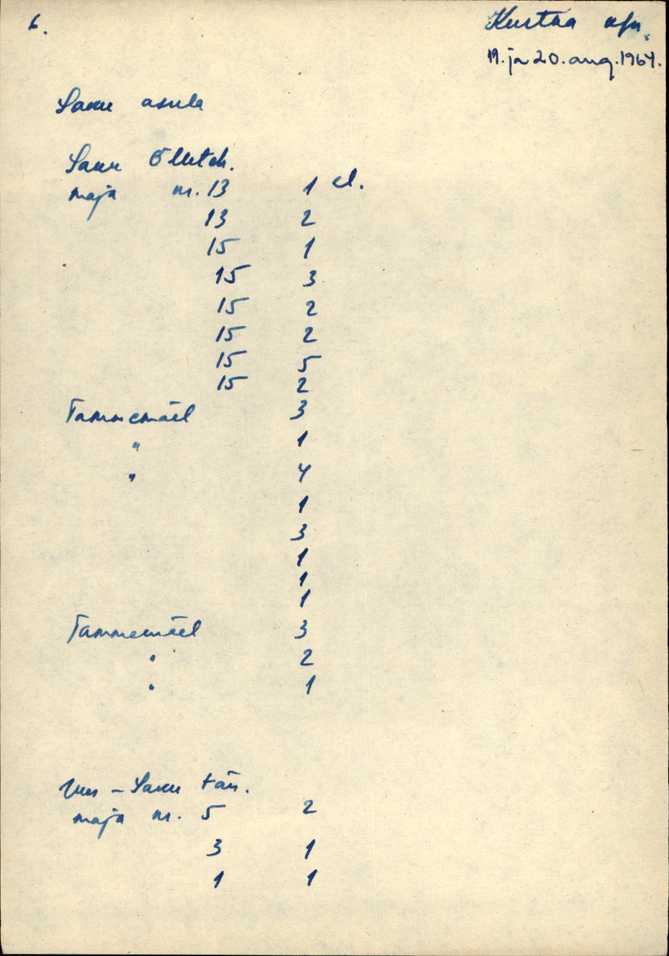 6.
Kurtna
19. ja 20. aug. 1964.
Saku asula
Saku Õlleteh.
maja nr. 13 1 el.
13 2
15 1
15 3
15 2
15 2
15 5
15 2
Tammemäel 3
" 1
" 4
1
3
1
1
1
Tammemäel 3
" 2
" 1
Uus - Saku tän.
maja nr. 5 2
3 1
1 1